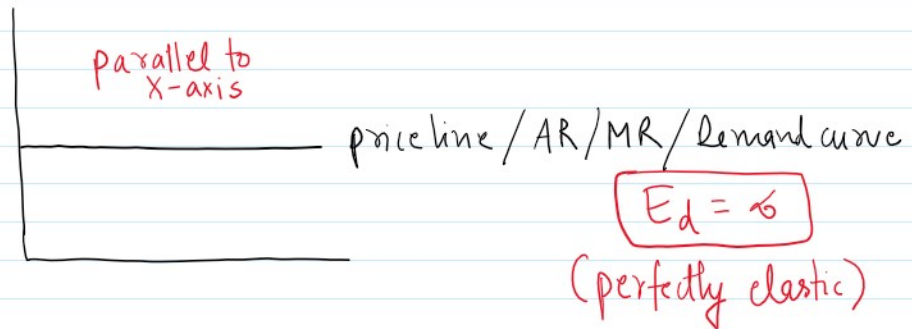 parallel to
X-axis
price line / AR / MR / Demand curve
Ed = ∞
(perfectly elastic)